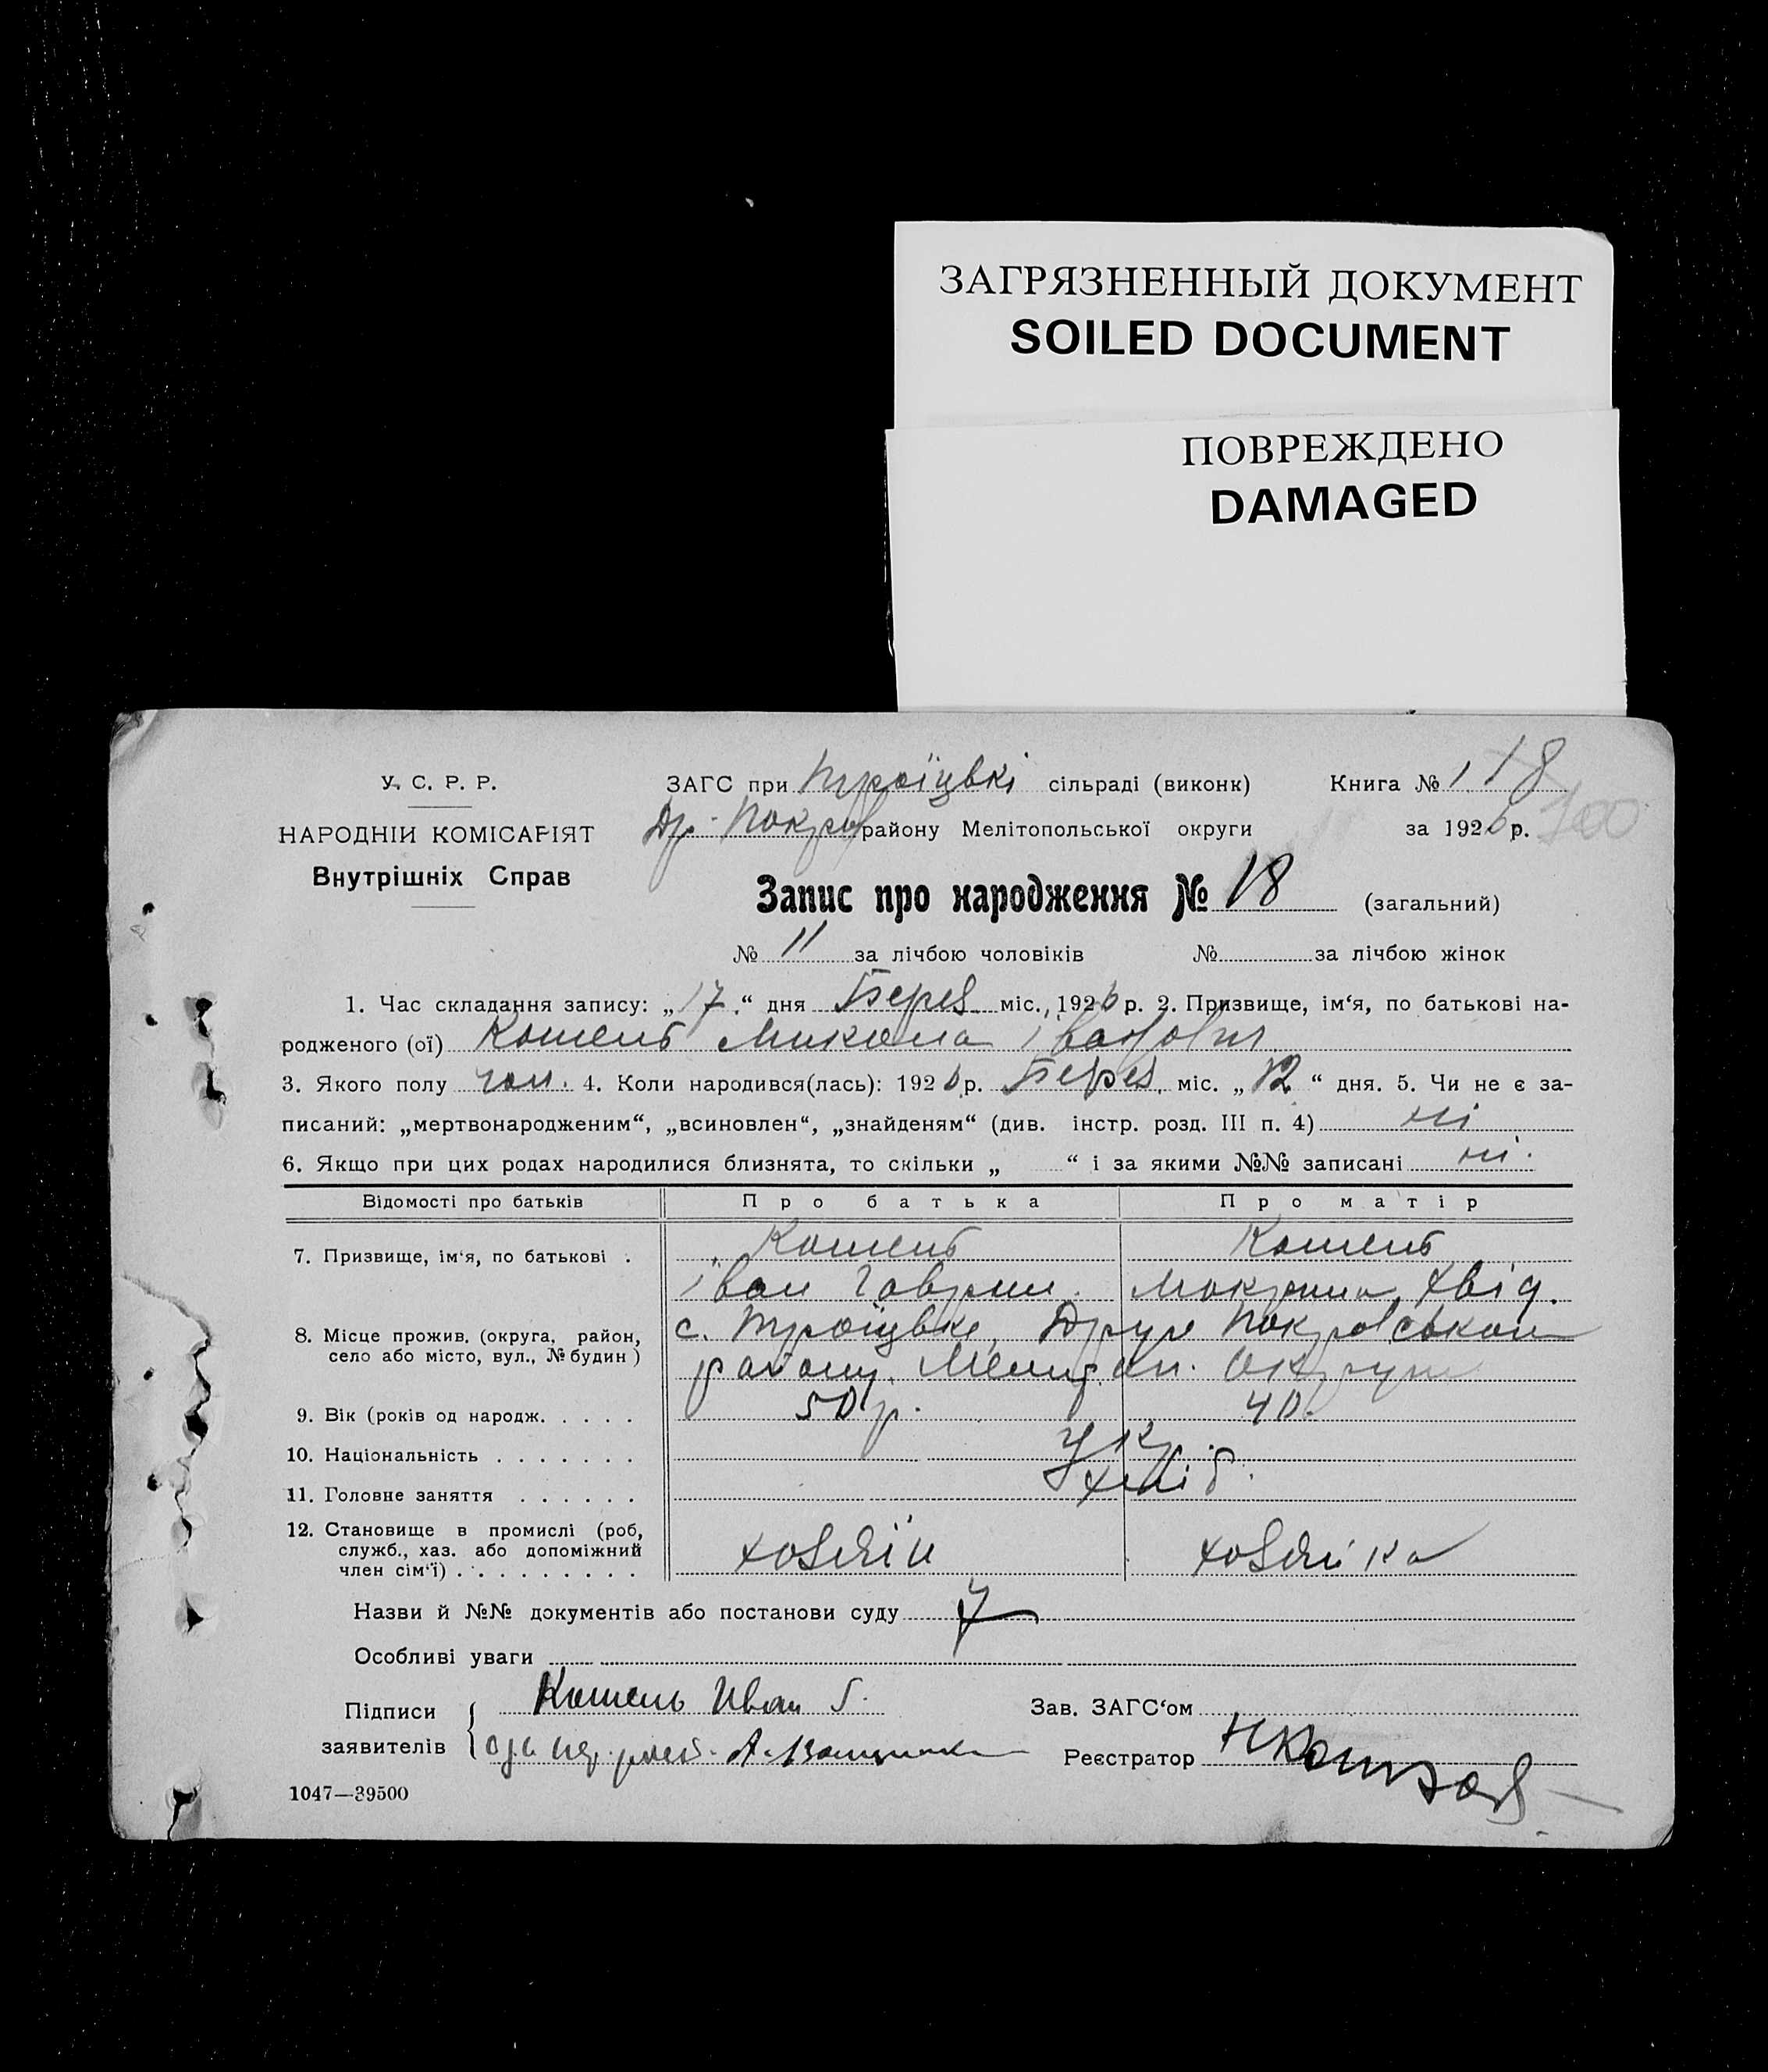 ЗАГРЯЗНЕННЫЙ ДОКУМЕНТ
SOILED DOCUMENT
ПОВРЕЖДЕНО
DAMAGED
У. С. Р. Р. ЗАГС при Троїцвкі сільраді (виконк) Книга № 1 18
НАРОДНІЙ КОМІСАРІЯТ Др. Покров району Мелітопольської округи за 1926 р. 100
Внутрішніх Справ
Запис про народження № 18 (загальний)
№ 11 за лічбою чоловіків № за лічбою жінок
1. Час складання запису: „17“ дня Берез. міс., 1926 р. 2. Призвище, ім‘я, по батькові на-
родженого (ої) Кошель Микола Іванович
3. Якого полу чол. 4. Коли народився(лась): 1926 р. Берез. міс. „12“ дня. 5. Чи не є за-
писаний: „мертвонародженим“, „всиновлен“, „знайденям“ (див. інстр. розд. III п. 4) ні
6. Якщо при цих родах народилися близнята, то скільки „ “ і за якими №№ записані ні.
Відомості про батьків Про батька Про матір
7. Призвище, ім‘я, по батькові . Кошель Кошель
Іван Гаврил. Мокрина Хвід.
8. Місце прожив. (округа, район, с. Троїцвке, Друге Покровського
село або місто, вул., № будин ) району. Меліт. Округи
9. Вік (років од народж. . . . . 50 р. 40.
10. Національність . . . . . . . Укр.
11. Головне заняття . . . . . . хліб.
12. Становище в промислі (роб,
служб., хаз. або допоміжний хозяїн хозяйка
член сім‘ї) . . . . . . . . . .
Назви й №№ документів або постанови суду
Особливі уваги
Підписи Кошель Иван Г. Зав. ЗАГС‘ом
заявителів Реєстратор
1047—39500